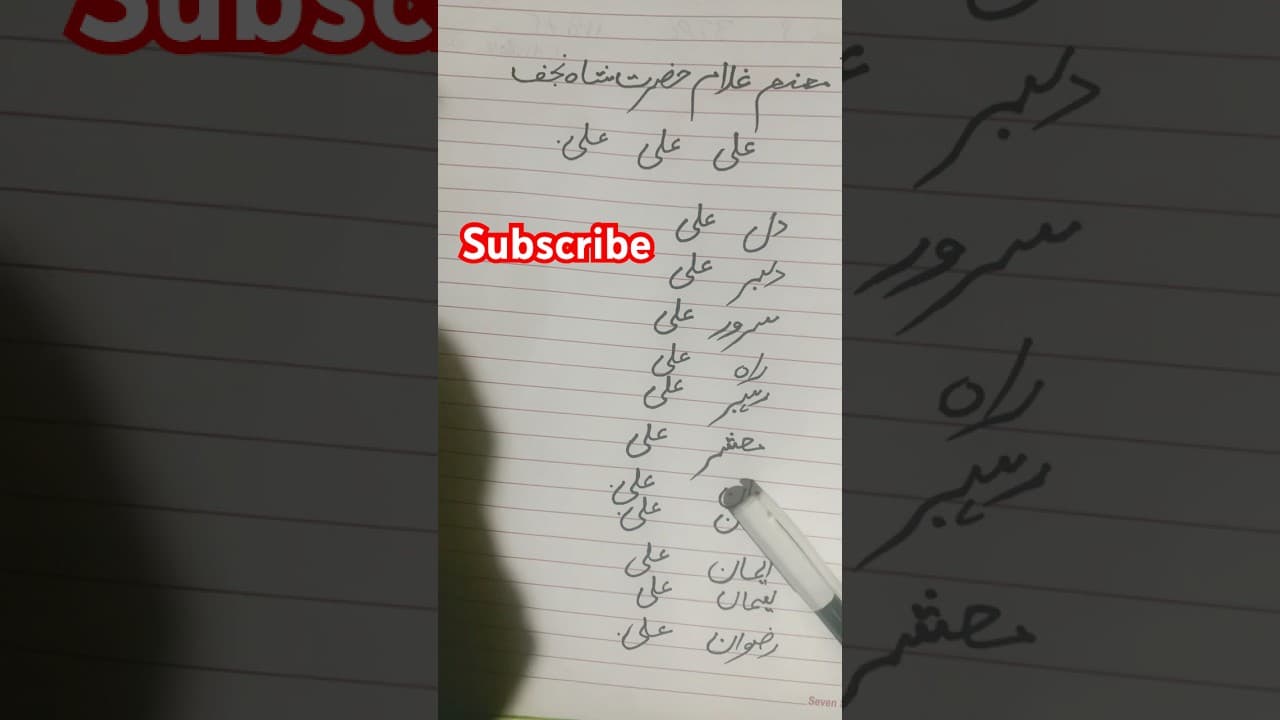 Subscribe
منم غلام حضرت شاہ نجف
علی علی علی
دل علی
دلبر علی
Subscribe
سرور علی
راہ علی
رہبر علی
محشر علی
علی
علی
ایمان علی
علی
رضوان علی
دلبر
سرور
راہ
رہبر
محشر
Seven